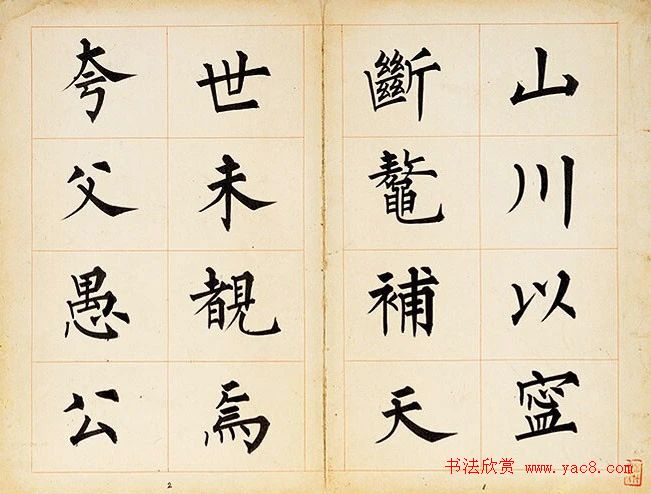 山川以寍
斷鼇補天
世未覩焉
夸父愚公
书法欣赏 www.yac8.com
1
2